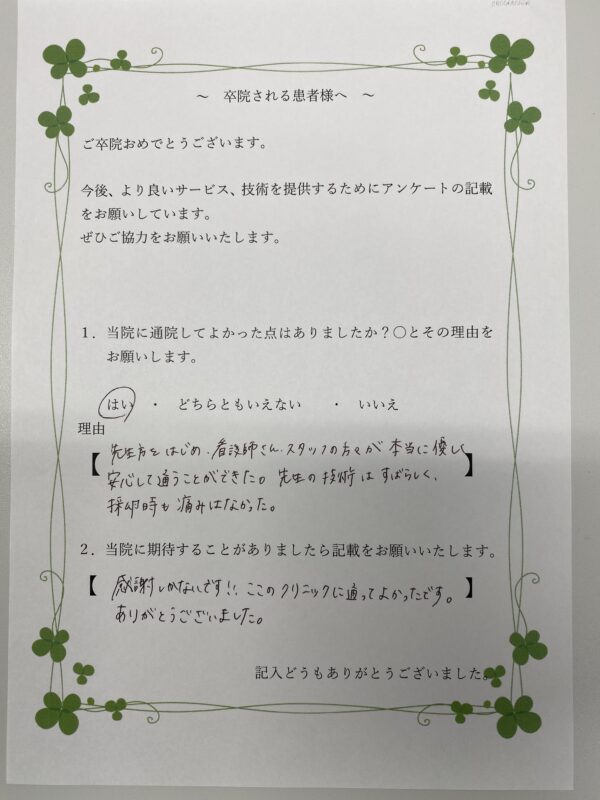 ～　卒院される患者様へ　～
ご卒院おめでとうございます。
今後、より良いサービス、技術を提供するためにアンケートの記載
をお願いしています。
ぜひご協力をお願いいたします。
１．当院に通院してよかった点はありましたか？〇とその理由を
お願いします。
はい　・　どちらともいえない　　・　いいえ
理由
【先生方をはじめ、看護師さん、スタッフの方々が本当に優しく
安心して通うことができた。先生の技術はすばらしく、】
採卵時も痛みはなかった。
２．当院に期待することがありましたら記載をお願いいたします。
【感謝しかないです!!、ここのクリニックに通ってよかったです。】
ありがとうございました。
記入どうもありがとうございました。